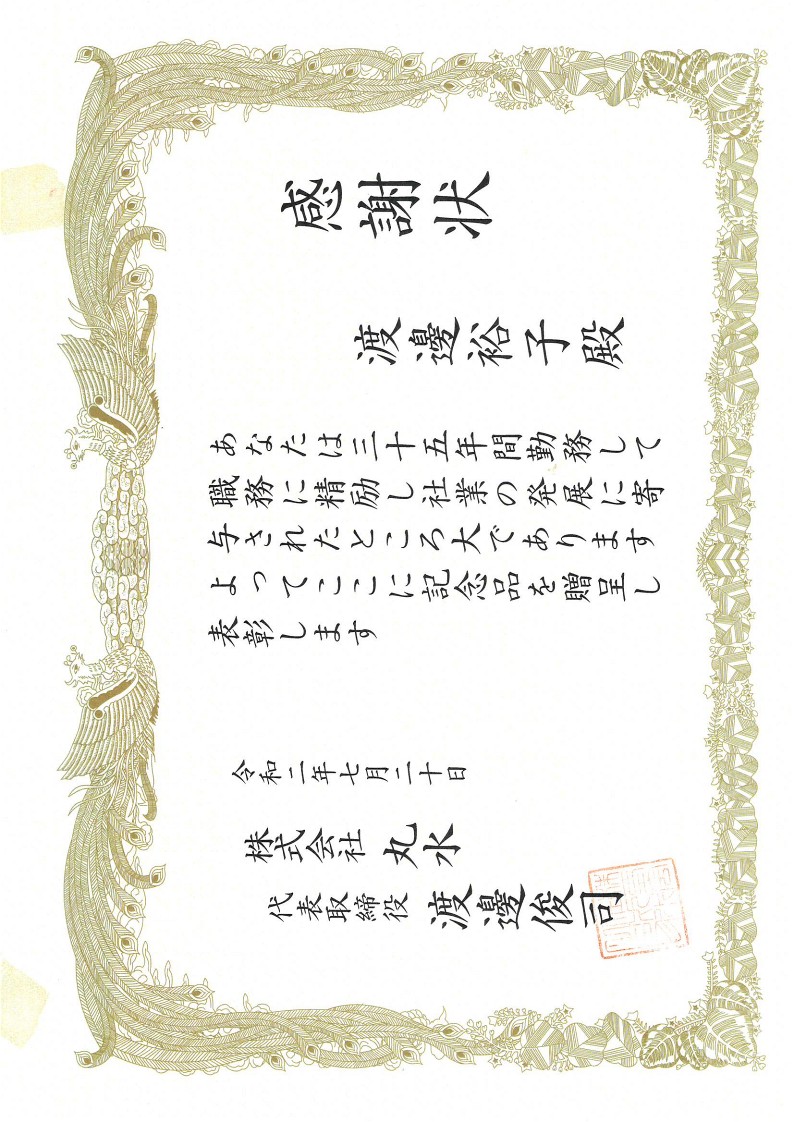 感謝状
渡邊裕子殿
あなたは三十五年間勤務して
職務に精励し社業の発展に寄
与されたところ大であります
よってここに記念品を贈呈し
表彰します
令和二年七月二十日
株式会社丸水
代表取締役渡邊俊司